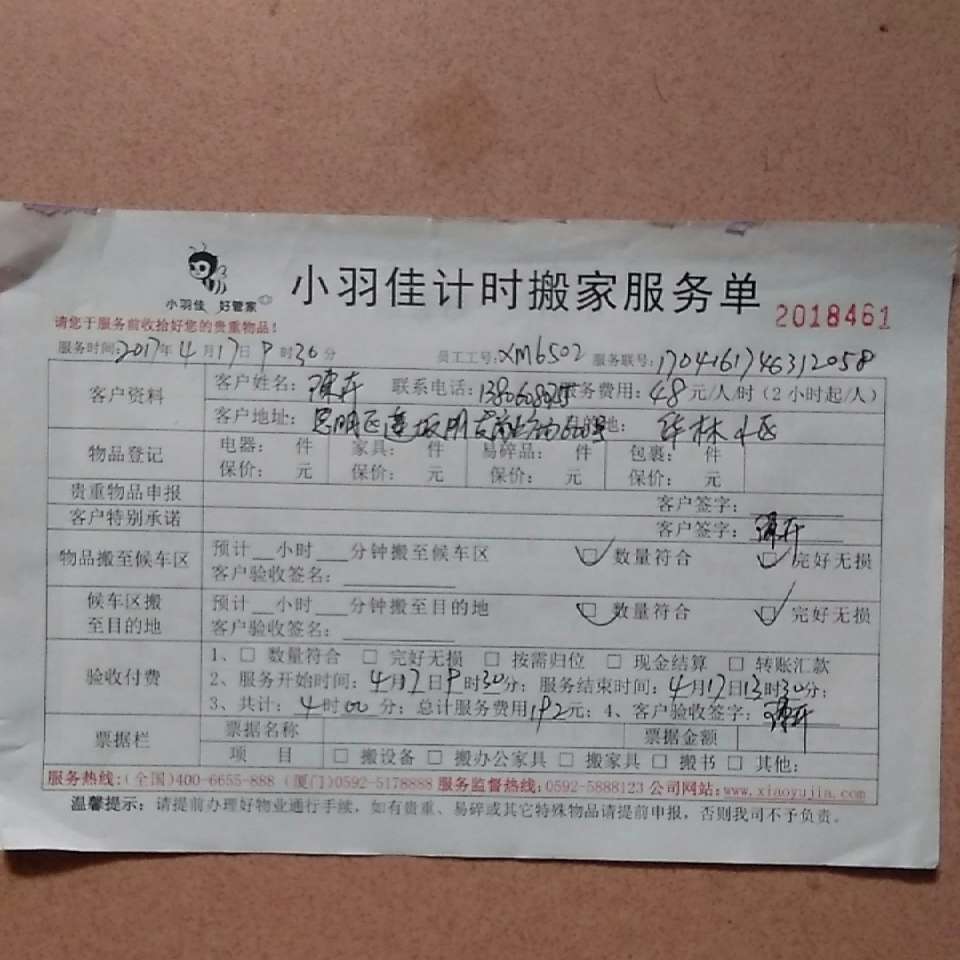 小羽佳 好管家
小羽佳计时搬家服务单
2018461
请您于服务前收拾好您的贵重物品！
服务时间：2017年4月17日9时30分 员工工号：XM6502 服务联号：17041617463 12058
客户资料 客户姓名： 联系电话： 务费用：48元/人/时（2小时起/人）
客户地址：思明区莲坂明发 地： 华林小区
物品登记 电器： 件 家具： 件 易碎品： 件 包裹： 件
保价： 元 保价： 元 保价： 元 保价： 元
贵重物品申报 客户签字：
客户特别承诺 客户签字：
物品搬至候车区 预计__小时___分钟搬至候车区 数量符合 完好无损
客户验收签名：
候车区搬至目的地 预计__小时___分钟搬至目的地 数量符合 完好无损
客户验收签名：
验收付费 1、□ 数量符合 □ 完好无损 □ 按需归位 □ 现金结算 □ 转账汇款
2、服务开始时间：4月 日9时30分；服务结束时间：4月17日13时30分；
3、共计：4时00分；总计服务费用192元；4、客户验收签字：
票据栏 票据名称 票据金额
项 目 □ 搬设备 □ 搬办公家具 □ 搬家具 □ 搬书 □ 其他：
服务热线：（全国）400-6655-888（厦门）0592-5178888 服务监督热线：0592-5888123 公司网站：www.xiaoyujia.com
温馨提示：请提前办理好物业通行手续，如有贵重、易碎或其它特殊物品请提前申报，否则我司不予负责。